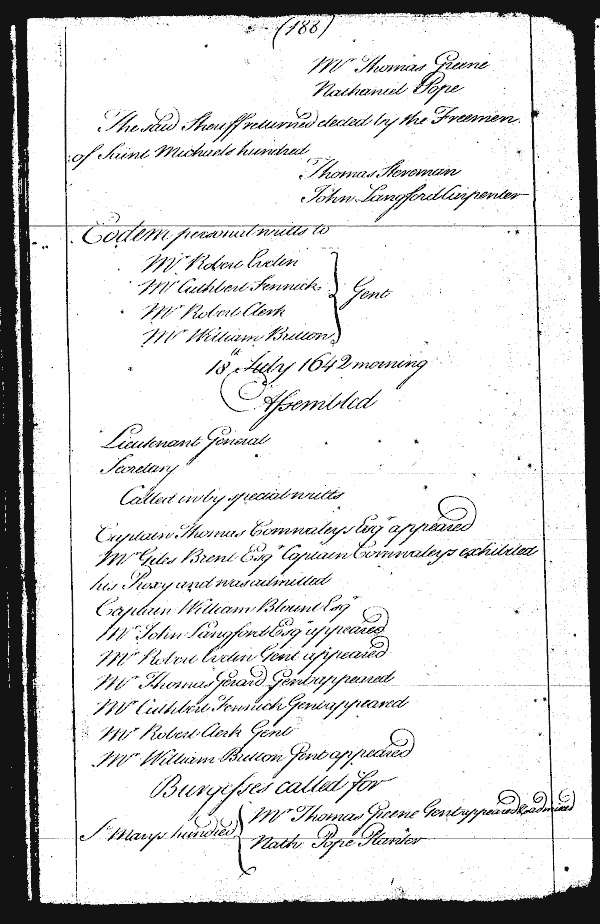 (188)
Mr Thomas Greene
Nathaniel Pope
The said Sheriff returned elected by the Freemen
of Saint Michaels hundred
Thomas Stereman
John Langford Carpenter
Eodem personal writts to
Mr Robert Evelin
Mr Cuthbert Fennick
Mr Robert Clerk
Mr William Britton
Gent
18th July 1642 morning
Assembled
Lieutenant General
Secretary
Called in by special writts
Captain Thomas Cornwaleys Esqr appeared
Mr Giles Brent Esqr Captain Cornwaleys exhibited
his Proxy and was admitted
Captain William Blount Esqr
Mr John Langford Esqr appeared
Mr Robert Evelin Gent appeared
Mr Thomas Gerard Gent appeared
Mr Cuthbert Fennick Gent appeared
Mr Robert Clerk Gent
Mr William Britton Gent appeared
Burgesses called for
St Marys hundred
Mr Thomas Greene Gent appeared & admitted
Nath Pope Planter